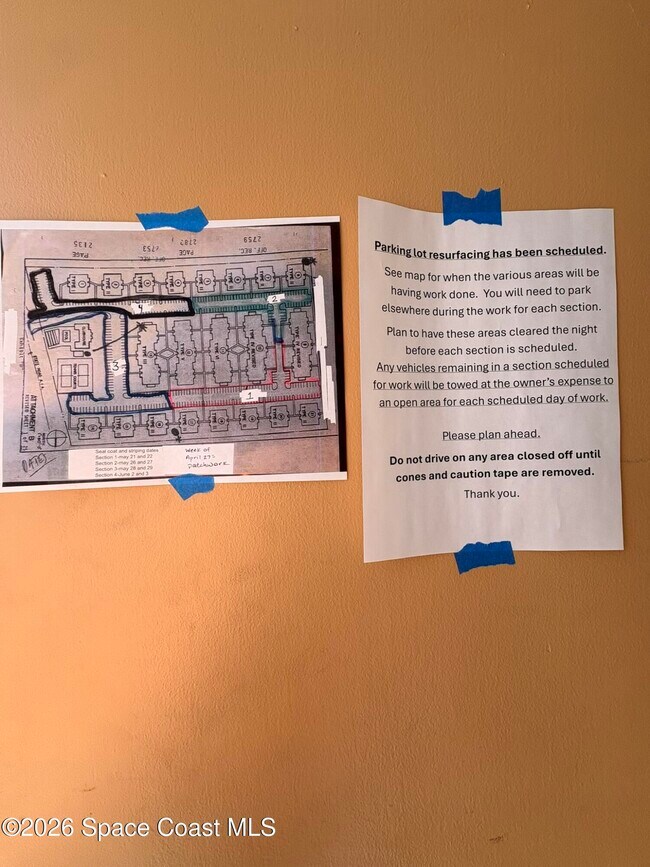 4
2
3
1
Seal coat and striping dates
Section 1-may 21 and 22
Section 2-may 26 and 27
Section 3-may 28 and 29
Section 4-June 2 and 3
Week of
April 27th
patchwork
GATE
Parking lot resurfacing has been scheduled.
See map for when the various areas will be
having work done. You will need to park
elsewhere during the work for each section.
Plan to have these areas cleared the night
before each section is scheduled.
Any vehicles remaining in a section scheduled
for work will be towed at the owner's expense to
an open area for each scheduled day of work.
Please plan ahead.
Do not drive on any area closed off until
cones and caution tape are removed.
Thank you.
©2026 Space Coast MLS